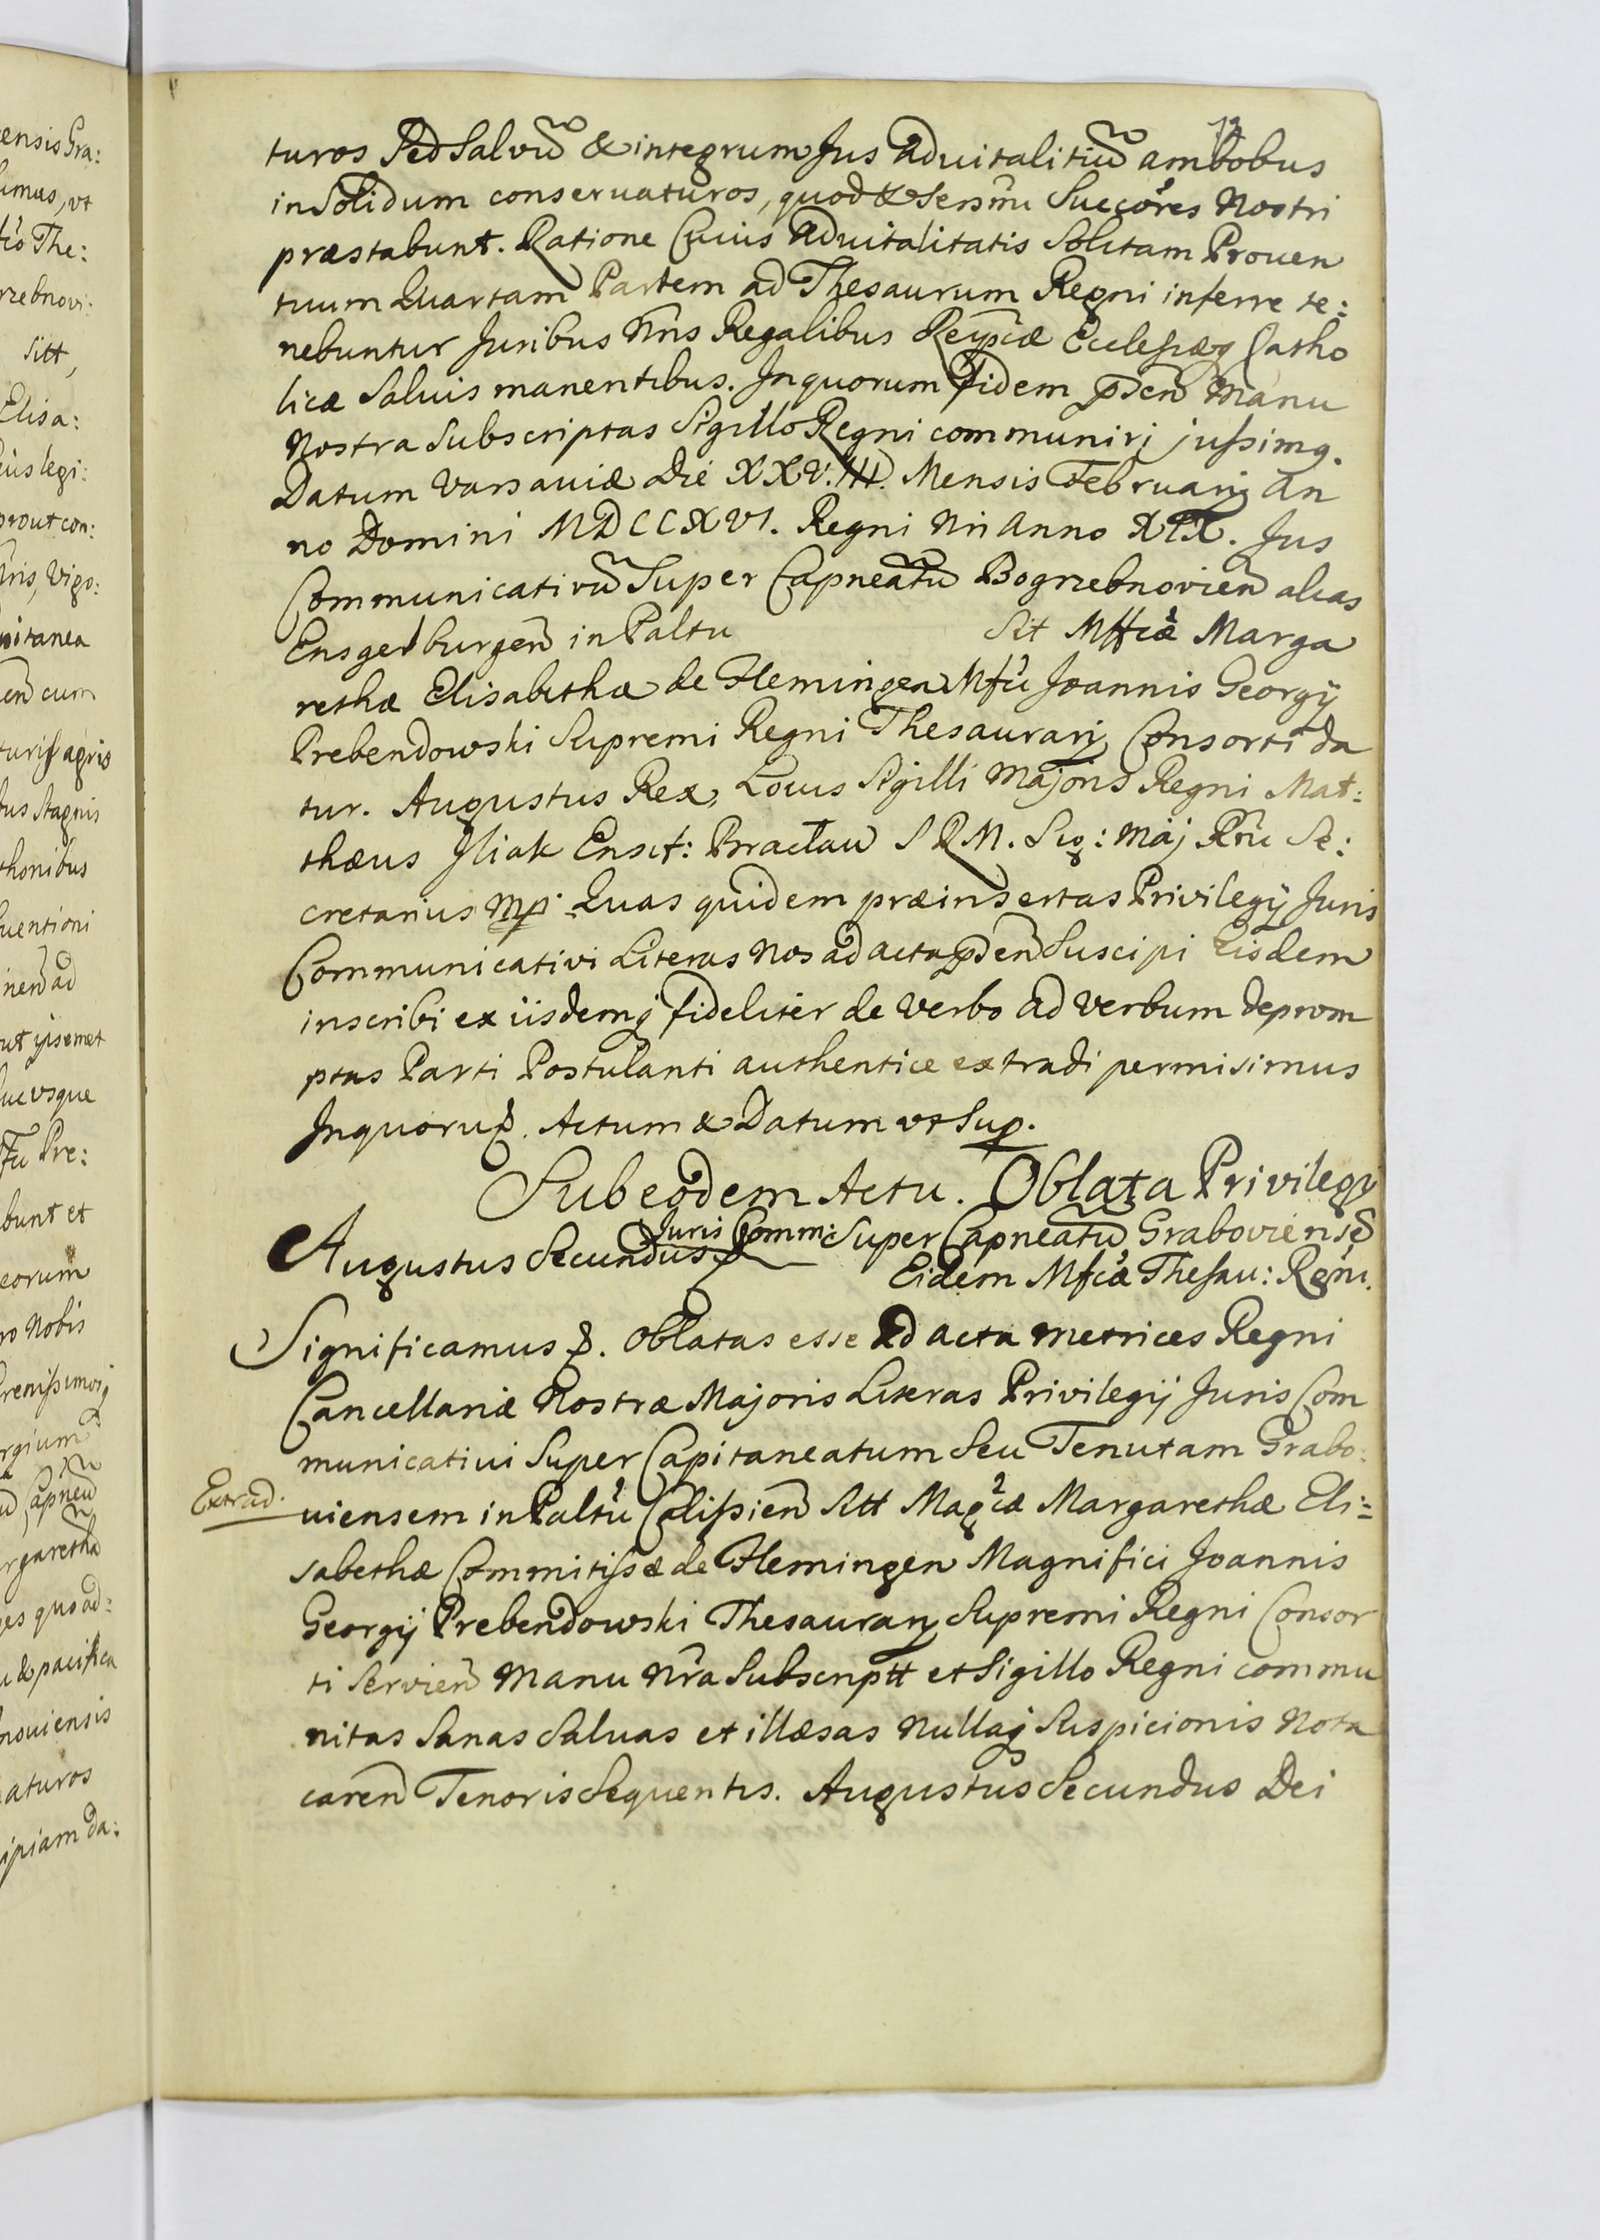 ensis Gra:
umus, vt
The:
rzebnovi:
sitt,
Elisa:
legi:
prout con:
Vigo:
itanea
cum
agris
stagnis
thonibus
uentioni
ad
ut ipsemet
vsque
Pre:
bunt et
eorum
ro Nobis
Capneu
rgaretha
quoad:
& pacifica
nouiensis
aturos
ipiam da:
turos Sed Salvũ & integrum Jus Advitalitiũ ambobus
in Solidum conservaturos, quod & Serśmi Succores Nostri
præstabunt. Ratione Cuius Advitalitatis Solitam Proven
tuum Quartam Partem ad Thesaurum Regni inferre te:
nebuntur Juribus Nris Regalibus Reipcæ Ecclesiæq Catho
licæ Salvis manentibus. In quorum fidem pñ Manu
Nostra Subscriptas Sigillo Regni communiri jussimq.
Datum Varsaviæ Die XXV.III. Mensis Februarij An
no Domini MDCCXVI. Regni Nri Anno XIX. Jus
Communicativũ Super Capneatũ Bogrzebnovien alias
Ensgelburgen in Paltu Sit Mfficæ Marga
rethæ Elisabethæ de Flemingen Mfci Joannis Georgij
Prebendowski Supremi Regni Thesaurarij Consorti da
tur. Augustus Rex, Locus Sigilli Majoris Regni Mat:
thæus Iliak Ensif: Pracław S R M. Sig: Maj Rni Se:
cretarius mp. Quas quidem præinsertas Privilegij Juris
Communicativi Literas Nos ad acta pñ Suscipi Eisdem
inscribi ex iisdemq fideliter de Verbo ad Verbum deprom
ptas Parti Postulanti authentice extradi permisimus
In quoru &. Actum & Datum vt Sup.
Sub eodem Actu. Oblata Privilegij
Juris Comm: Super Capneatũ Graboviense
Augustus Secundus &
Eidem Mfcæ Thesau: Regni.
Significamus &. Oblatas esse Ad acta Metrices Regni
Cancellariæ Nostræ Majoris Literas Privilegij Juris Com
municativi Super Capitaneatum Seu Tenutam Grabo:
Extrad.
viensem in Paltu Calissien Sitt Magcæ Margarethæ Eli:
sabethæ Commitissæ de Flemingen Magnifici Joannis
Georgij Prebendowski Thesaurarij Supremi Regni Consor
ti Servien Manu Nra Subscriptt et Sigillo Regni commu
nitas Sanas Salvas et illæsas Nullaq Suspicionis Nota
caren Tenoris Sequentis. Augustus Secundus Dei